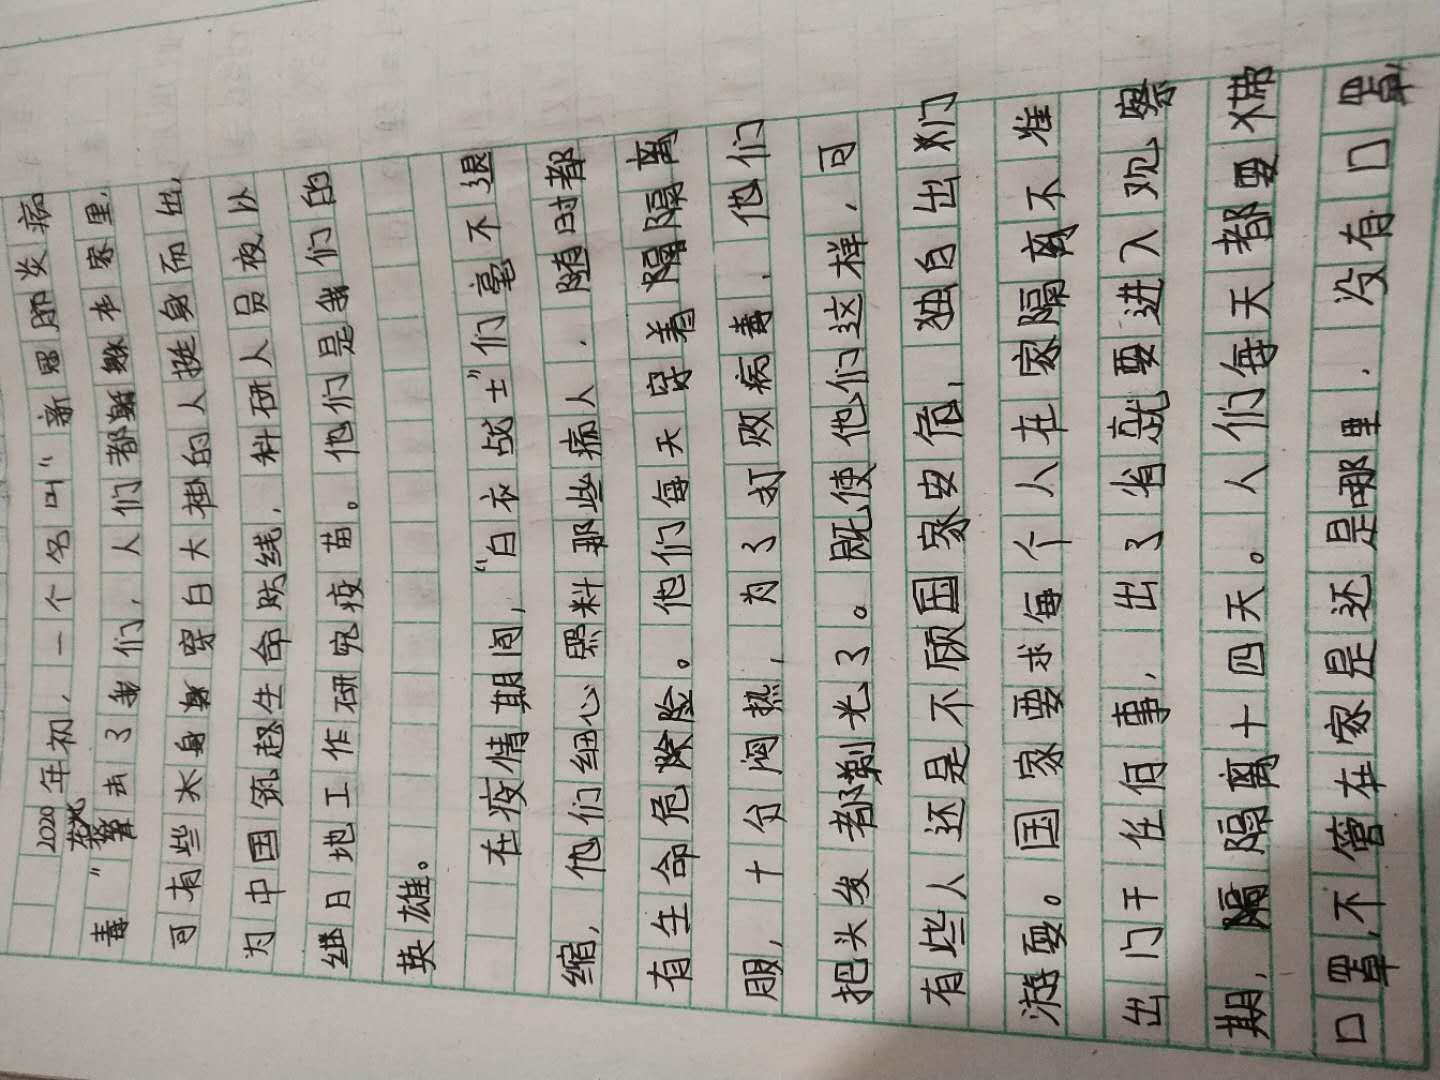 2020年初,一个名叫“新冠肺炎病
毒”袭击了我们,人们都躲在家里,
可有些木身穿白大褂的人挺身而出,
为中国筑起生命防线,科研人员夜以
继日地工作研究疫苗。他们是我们的
英雄。
在疫情期间,“白衣战士”们毫不退
缩,他们细心照料那些病人,随时都
有生命危险。他们每天穿着隔离
服,十分闷热,为了打败病毒,他们
把头发都剃光了。既使他们这样,可
有些人还是不顾国家安危,独自出门
游耍。国家要求每个人在家隔离不准
出门干任何事,出了省就要进入观察
期,隔离十四天。人们每天都要带
口罩,不管在家是还是哪里,没有口罩,